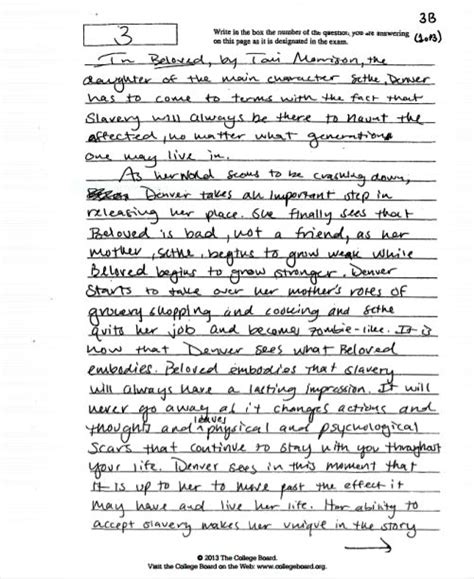 3B
3
Write in the box the number of the question you are answering
on this page as it is designated in the exam.
(1 of 3)
In Beloved, by Toni Morrison, the
daughter of the main character Sethe, Denver
has to come to terms with the fact that
Slavery will always be there to haunt the
affected, no matter what generations
one may live in.
As her world seems to be crashing down,
Denver takes an important step in
releasing her place. She finally sees that
Beloved is bad, not a friend, as her
mother, Sethe, begins to grow weak while
Beloved begins to grow stronger. Denver
starts to take over her mother's roles of
grocery shopping and cooking and Sethe
quits her job and becomes zombie-like. It is
now that Denver sees what Beloved
embodies. Beloved embodies that slavery
will always have a lasting impression. It will
never go away as it changes actions and
thoughts and leaves physical and psychological
scars that continue to stay with you throughout
your life. Denver sees in this moment that
it is up to her to move past the effect it
may have and live her life. Her ability to
accept slavery makes her unique in the story
© 2013 The College Board.
Visit the College Board on the Web: www.collegeboard.org.